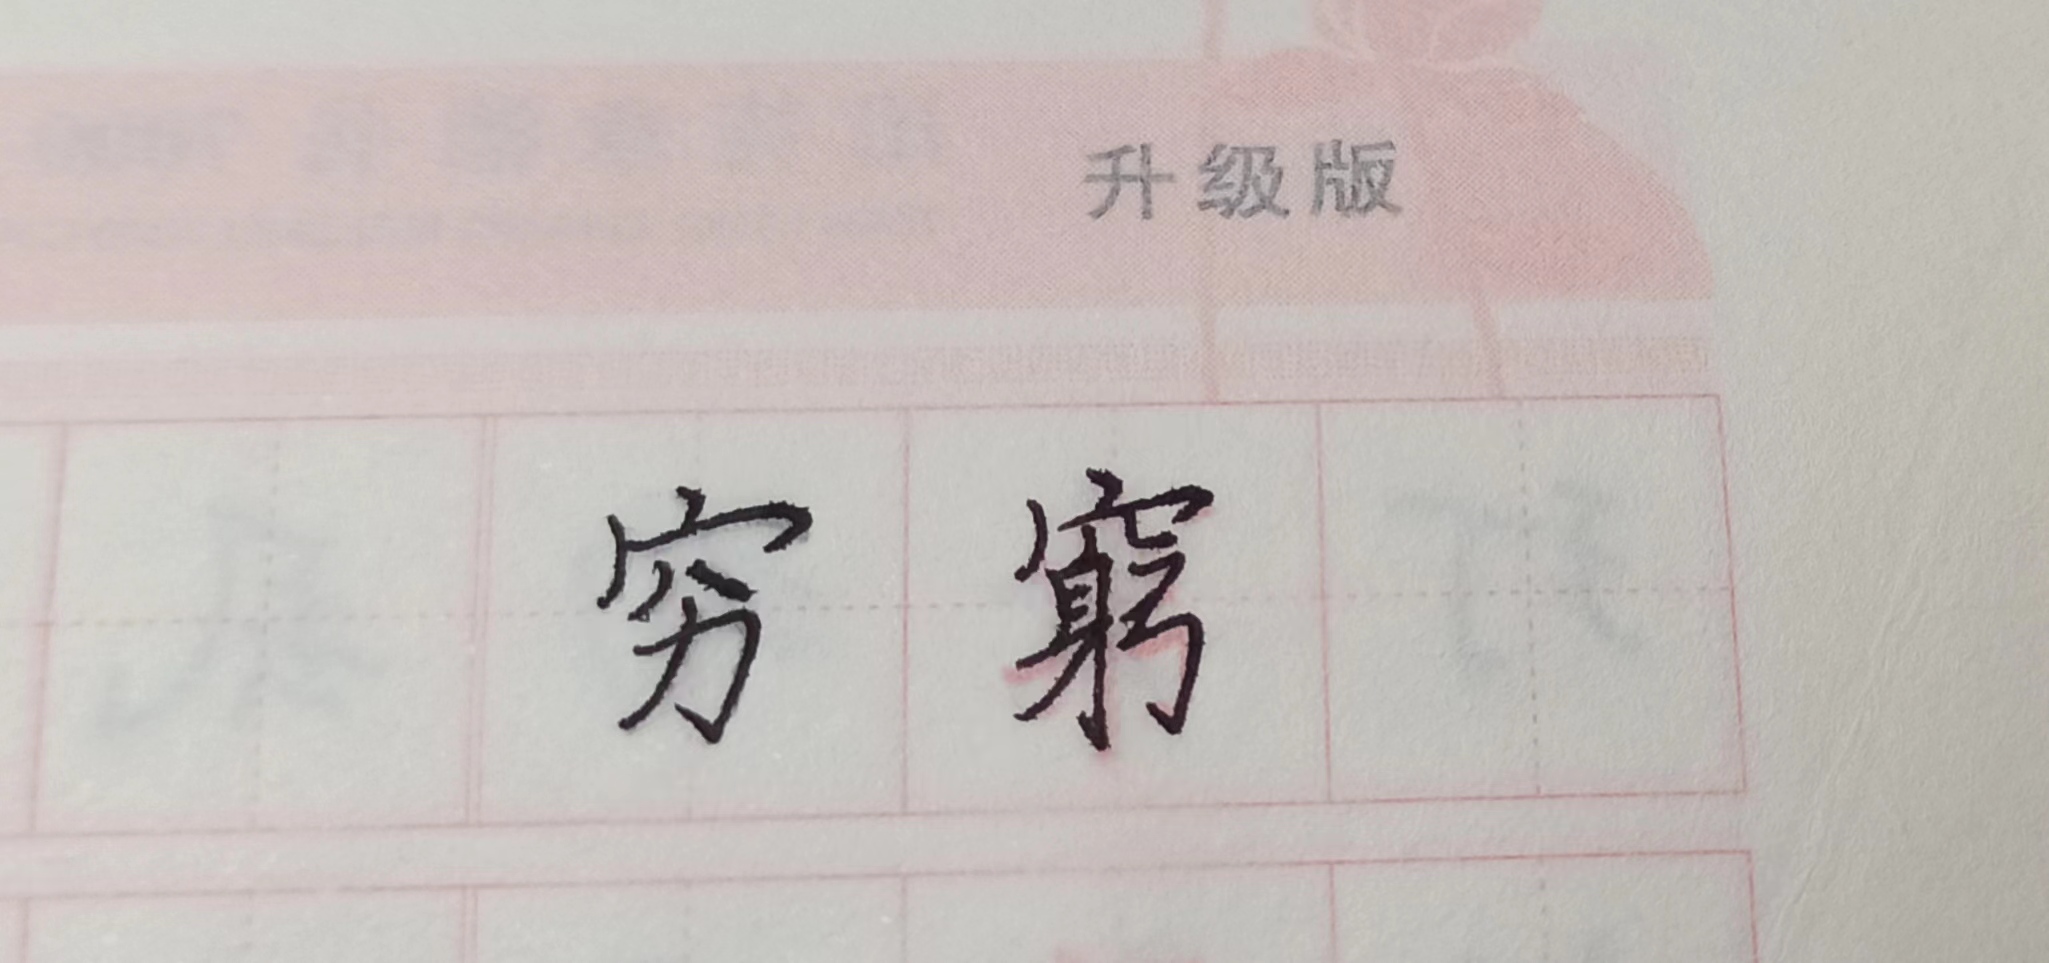 升级版
穷 窮